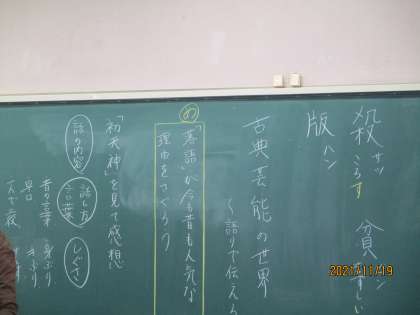 殺 サツ ころす
貧 ヒン まずしい
版 ハン
古典芸能の世界
〜語りで伝える
め
「落語」が今も昔も人気な
理由をさぐろう
「初天神」を見て感想
話の内容
話し方
言葉
しぐさ
昔の言葉
早口
身ぶり
手ぶり
2021/11/19